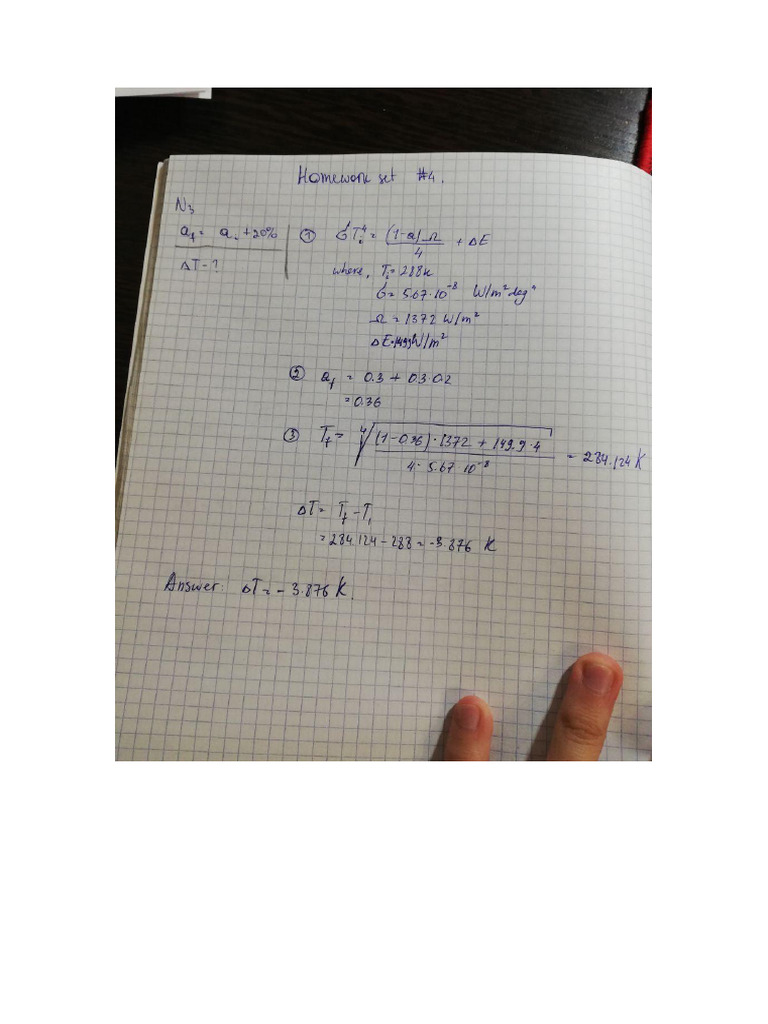 Homework set #4.
N3
a_f = a_i + 20%
ΔT - ?
① σT_i⁴ = (1-a)Ω / 4 + ΔE
where, T_i = 288K
σ = 5.67·10⁻⁸ W/m² deg⁴
Ω = 1372 W/m²
ΔE = 149.9 W/m²
② a_f = 0.3 + 0.3·0.2
= 0.36
③ T_f = ⁴√((1-0.36)·1372 + 149.9·4 / 4·5.67·10⁻⁸) = 284.124 K
ΔT = T_f - T_i
= 284.124 - 288 = -3.876 K
Answer: ΔT = -3.876 K.